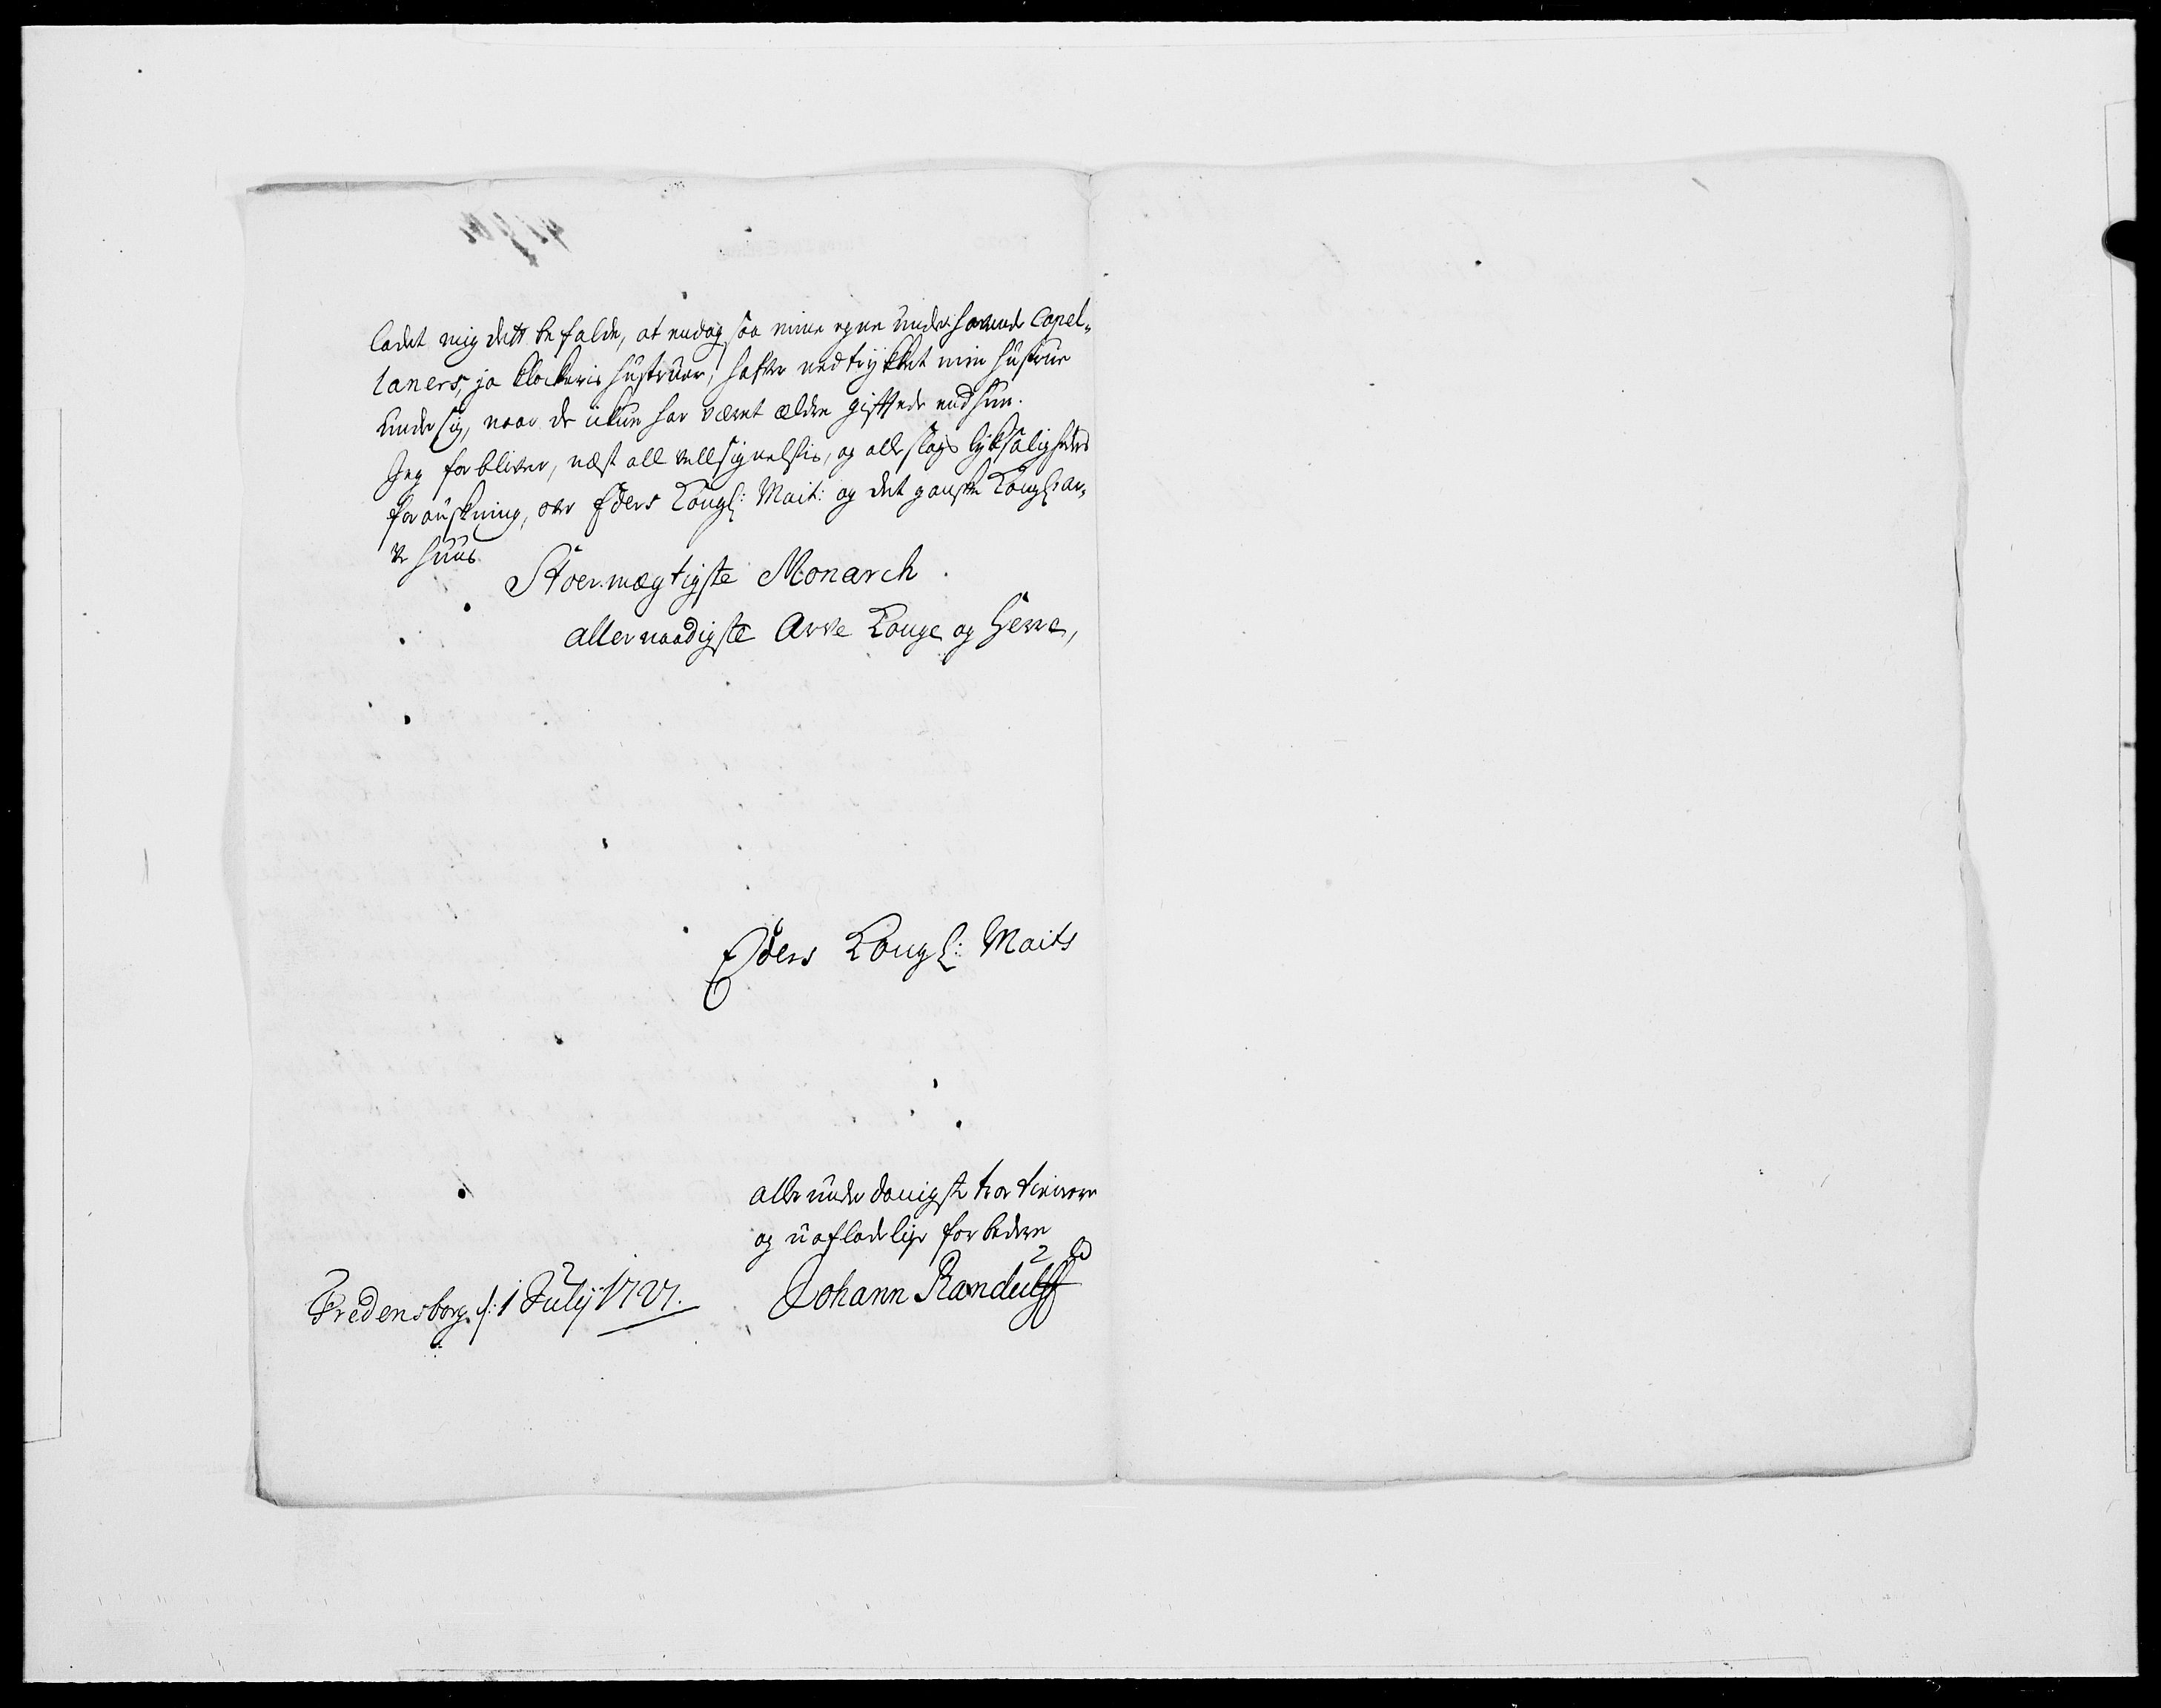 ladet mig dett befalde, at endog saa mine egne underhavende Capel-
laners, ja klockeris hustruer, hafver nedtrykket min hustrue
under sig, naar de ikun har været ældre gifftede end hun.
Jeg forbliver, næst all vellsignelsis, og alle slags lyksaligheds
forønskning, over Eders Kongl: Mait: og det ganske Kongl: ar-
ve huus
Stoermægtigste Monarch
allernaadigste Arve Konge og Herre,
Eders Kongl: Maits
allerunderdanigste troe tienere
og uafladelige forbedere
Johann Randulff
Fredensborg d: 1 Julij 1727.